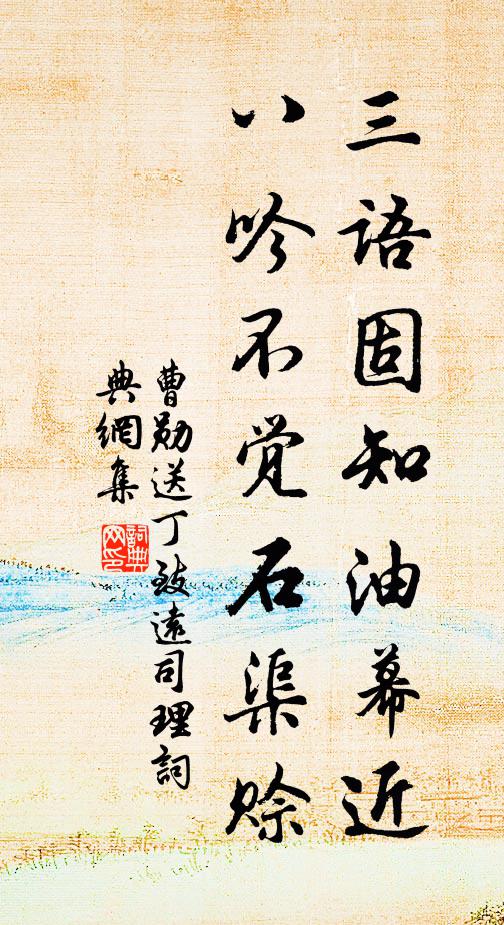 三语固知油幕近
八吟不觉石渠赊
曹勋送丁致遠司理詞
典網集
詞典网印